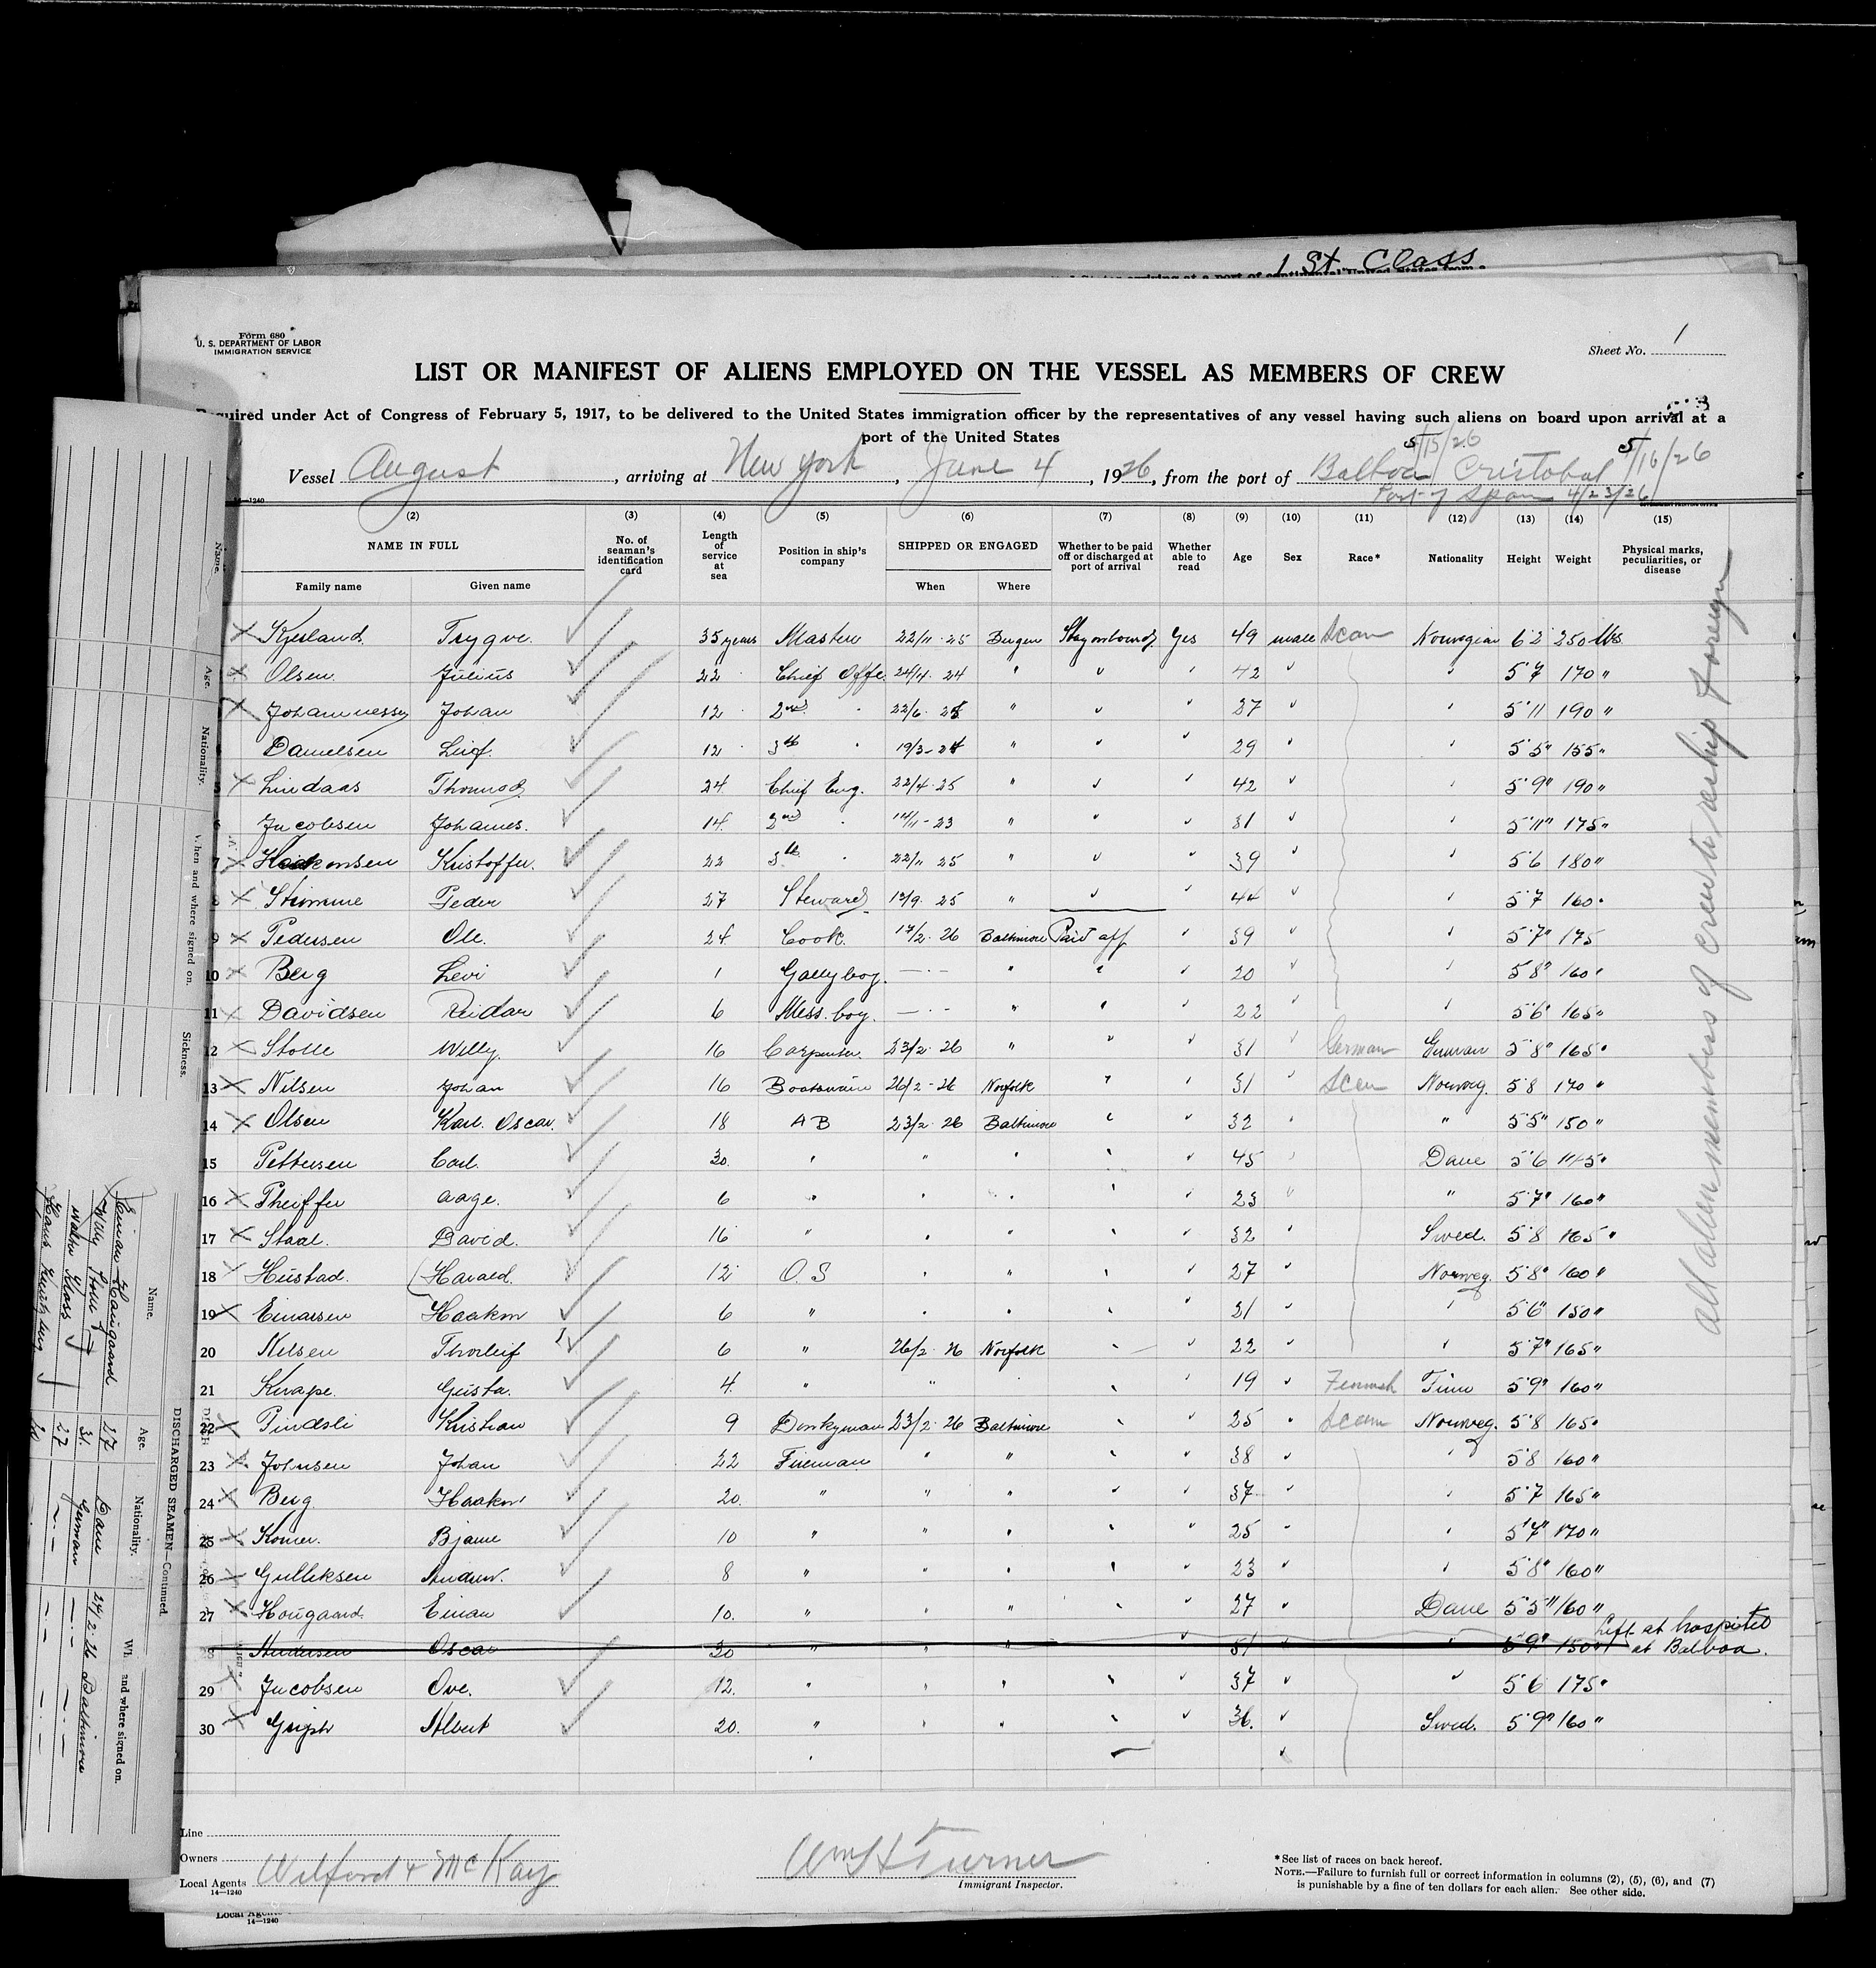 1 St. Class
Form 680
U. S. DEPARTMENT OF LABOR
IMMIGRATION SERVICE
Sheet No. 1
LIST OR MANIFEST OF ALIENS EMPLOYED ON THE VESSEL AS MEMBERS OF CREW
Required under Act of Congress of February 5, 1917, to be delivered to the United States immigration officer by the representatives of any vessel having such aliens on board upon arrival at a
port of the United States
5/15/26 5/16/26
Vessel August, arriving at New York, June 4, 1926, from the port of Balboa Cristobal
Port of Spain 4/23/26
14—1240
(2) (3) (4) (5) (6) (7) (8) (9) (10) (11) (12) (13) (14) (15)
NAME IN FULL No. of seaman's identification card Length of service at sea Position in ship's company SHIPPED OR ENGAGED Whether to be paid off or discharged at port of arrival Whether able to read Age Sex Race* Nationality Height Weight Physical marks, peculiarities, or disease
Family name Given name When Where
Kjesland Trygve. 35 years Master 22/11 25 Bergen Stay onboard Yes 49 male Scan Norwegian 6 2 250 lbs
Olsen Julius 22 Chief Offc. 24/4 24 " " 42 " " 5'7 170 "
Johannessen Johan 12 2nd " 22/6 25 " " 27 " " 5'11 190 "
Danielsen Leif 12 3th " 19/3-24 " " " 29 " 5'5" 155 "
5 Lindaas Thormod 24 Chief Eng. 22/4-25 " " " 42 " " 5'9" 190 "
6 Jacobsen Johannes. 14 2nd " 14/11-23 " " " 31 " " 5'11" 175 "
7 Haakonsen Kristoffer. 22 3th " 22/11 25 " " " 39 " " 5'6 180 "
8 Stimme Peder 27 Steward 12/9 25 " " " 44 " " 5'7 160 "
9 Pedersen Ole. 24 Cook. 17/2-26 Baltimore Paid off " 39 " " 5'7" 175
10 Berg Levi 1 Galleyboy. — · – " " " 20 " " 5'8" 160 "
11 Davidsen Reidar 6 Mess. boy. — · – " " " 22 " " 5'6" 165 "
12 Stolle Willy. 16 Carpenter 23/2-26 " " " 31 " German German 5'8" 165 "
13 Nilsen Johan 16 Boatswain 26/2-26 Norfolk " " 31 " Scan Norweg. 5'8 170 "
14 Olsen Karl. Oscar. 18 A B 23/2-26 Baltimore " " 32 " " 5'5" 150 "
15 Pettersen Carl. 30. " " " " " 45 " Dane 5'6 145 "
16 Pheiffer Aage. 6 " " " " " 23 " " 5'7" 160 "
17 Staal. David. 16 " " " " " 32 " Swed. 5'8 165 "
18 Hustad. Harald. 12 O. S " " " " 27 " Norweg. 5'8" 160 "
19 Einarsen Haakon 6 " " " " 21 " " 5'6" 150 "
20 Nilsen Thorleif 6 " 26/2-26 Norfolk " " 22 " " 5'7" 165 "
21 Knape. Gusta. 4. " " " " 19 " Finnish Finn 5'9" 160 "
22 Tindsli Kristian 9 Donkyman 23/2-26 Baltimore " " 25 " Scan Norweg. 5'8 165 "
23 Johnsen Johan 22 Fireman " " " " 38 " " 5'8 160 "
24 Berg Haakon 20. " " " " " 37 " " 5'7 165 "
25 Bjarne 10 " " " " " 25 " " 5'7" 170 "
26 Gulliksen 8 " " " " " 23 " " 5'8" 160 "
27 Hougaard. Einar 10. " " " " " 27 " Dane 5'5" 160 "
28 Andersen Oscar 30 " " " " 51 " 5'9" 150 " Left at hospital
at Balboa.
29 Jacobsen Ove. 12. " " " " " 37 " " 5'6 175 "
30 Albert 20. " " " " " 36. " Swed. 5'9" 160 "
all alien members of crew to reship foreign
Line
Owners
Local Agents Wilford & McKay
14—1240
Wm H Turner
Immigrant Inspector.
*See list of races on back hereof.
NOTE.—Failure to furnish full or correct information in columns (2), (5), (6), and (7)
is punishable by a fine of ten dollars for each alien. See other side.
Local Agents
14—1240
Name. Age. Nationality. When and where signed on. Sickness.
DISCHARGED SEAMEN—Continued.
Name. Age. Nationality. Wh and where signed on.
Einar Haugaard 27 Dane 24/2-26 Baltimore
Willy Stolle 31. German — · —
Walter Kloss 27 — · — — · —
Hans